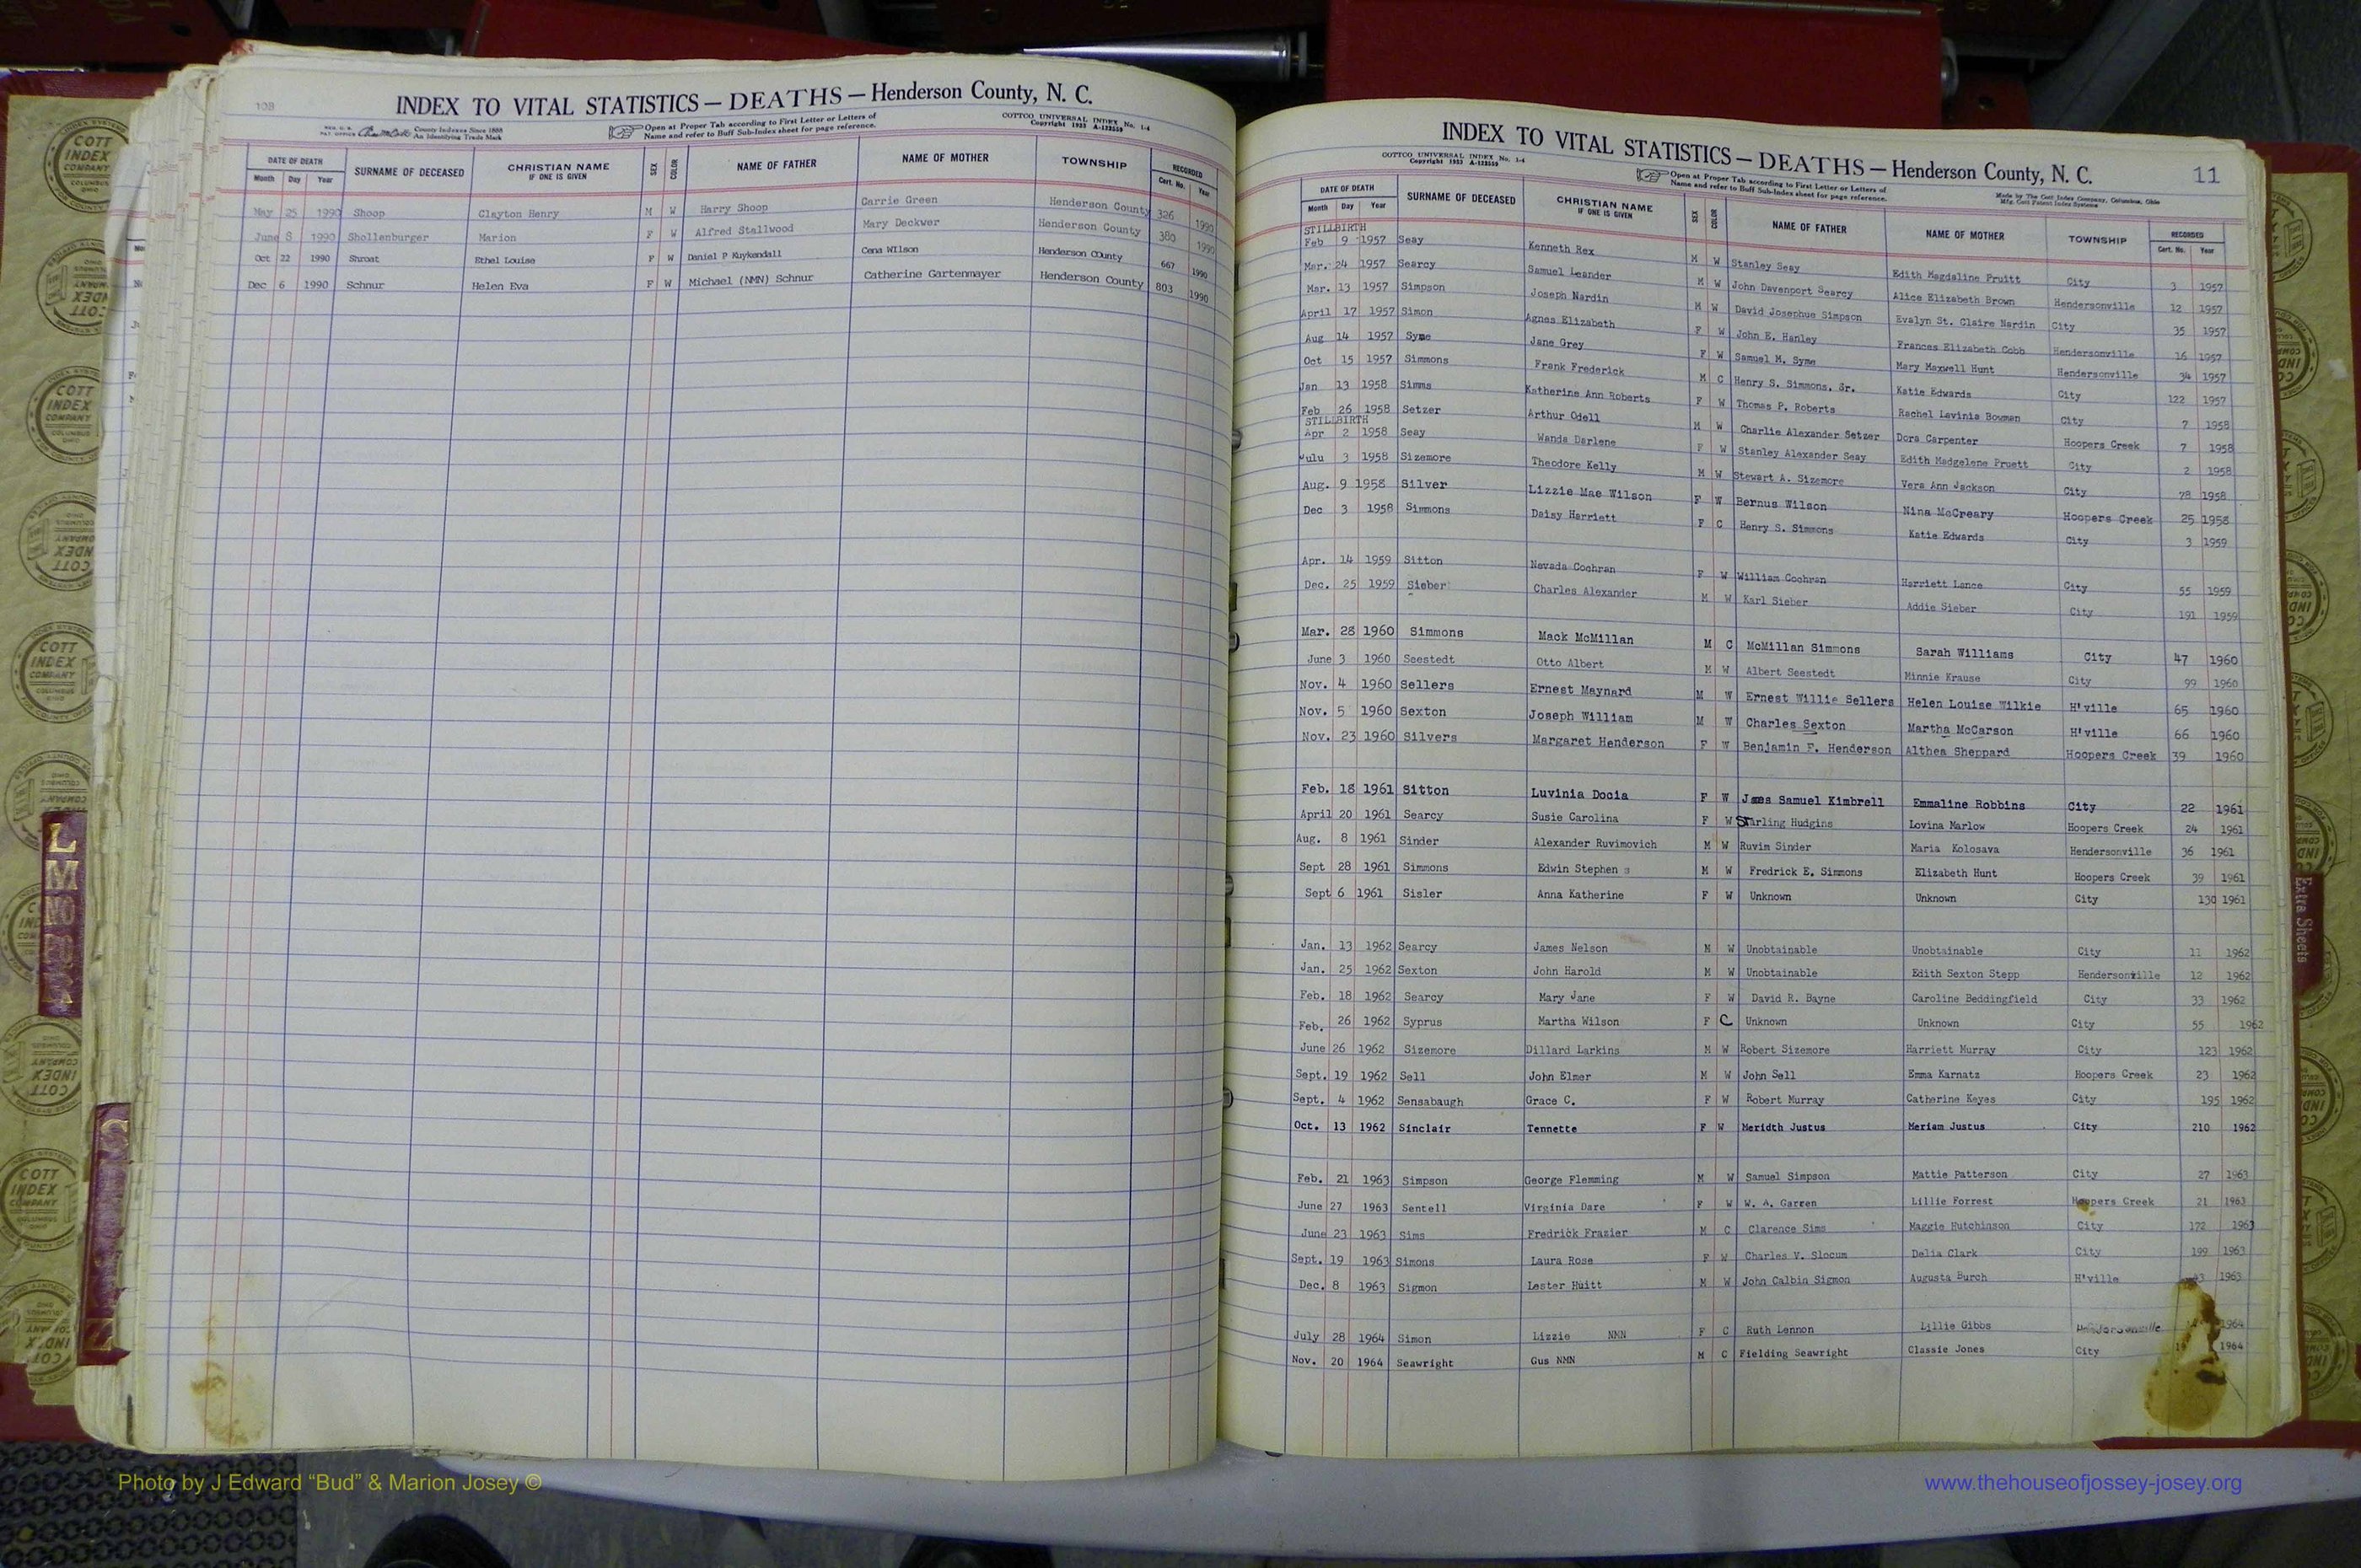 108
INDEX TO VITAL STATISTICS — DEATHS — Henderson County, N. C.
County Indexes Since 1888
An Identifying Trade Mark
Open at Proper Tab according to First Letter or Letters of
Name and refer to Buff Sub-Index sheet for page reference.
COTTCO UNIVERSAL INDEX No. 1-4
Copyright 1933 A-122559
DATE OF DEATH SURNAME OF DECEASED CHRISTIAN NAME IF ONE IS GIVEN SEX COLOR NAME OF FATHER NAME OF MOTHER TOWNSHIP RECORDED
Month Day Year Cert. No. Year
May 25 1990 Shoop Clayton Henry M W Harry Shoop Carrie Green Henderson County 326 1990
June 8 1990 Shollenburger Marion F W Alfred Stallwood Mary Deckwer Henderson County 380 1990
Oct 22 1990 Shroat Ethel Louise F W Daniel P Kuykendall Cena Wilson Henderson County 667 1990
Dec 6 1990 Schnur Helen Eva F W Michael (NMN) Schnur Catherine Gartenmayer Henderson County 803 1990
INDEX TO VITAL STATISTICS — DEATHS — Henderson County, N. C. 11
COTTCO UNIVERSAL INDEX No. 1-4
Copyright 1933 A-122559
Open at Proper Tab according to First Letter or Letters of
Name and refer to Buff Sub-Index sheet for page reference.
Made by The Cott Index Company, Columbus, Ohio
Mfg. Cott Patent Index Systems
DATE OF DEATH SURNAME OF DECEASED CHRISTIAN NAME IF ONE IS GIVEN SEX COLOR NAME OF FATHER NAME OF MOTHER TOWNSHIP RECORDED
Month Day Year Cert. No. Year
STILLBIRTH
Feb 9 1957 Seay Kenneth Rex M W Stanley Seay Edith Magdaline Pruitt City 3 1957
Mar. 24 1957 Searcy Samuel Leander M W John Davenport Searcy Alice Elizabeth Brown Hendersonville 12 1957
Mar. 13 1957 Simpson Joseph Nardin M W David Josephue Simpson Evalyn St. Claire Nardin City 35 1957
April 17 1957 Simon Agnes Elizabeth F W John E. Hanley Frances Elizabeth Cobb Hendersonville 16 1957
Aug 14 1957 Syme Jane Grey F W Samuel M. Syme Mary Maxwell Hunt Hendersonville 34 1957
Oct 15 1957 Simmons Frank Frederick M C Henry S. Simmons, Sr. Katie Edwards City 122 1957
Jan 13 1958 Simms Katherine Ann Roberts F W Thomas P. Roberts Rachel Lavinia Bowman City 7 1958
Feb 26 1958 Setzer Arthur Odell M W Charlie Alexander Setzer Dora Carpenter Hoopers Creek 7 1958
STILLBIRTH
Apr 2 1958 Seay Wanda Darlene F W Stanley Alexander Seay Edith Madgelene Pruett City 2 1958
Julu 3 1958 Sizemore Theodore Kelly M W Stewart A. Sizemore Vera Ann Jackson City 78 1958
Aug. 9 1958 Silver Lizzie Mae Wilson F W Bernus Wilson Nina McCreary Hoopers Creek 25 1958
Dec 3 1958 Simmons Daisy Harriett F C Henry S. Simmons Katie Edwards City 3 1959
Apr. 14 1959 Sitton Nevada Cochran F W William Cochran Harriett Lance City 55 1959
Dec. 25 1959 Sieber Charles Alexander M W Karl Sieber Addie Sieber City 191 1959
Mar. 28 1960 Simmons Mack McMillan M C McMillan Simmons Sarah Williams City 47 1960
June 3 1960 Seestedt Otto Albert M W Albert Seestedt Minnie Krause City 99 1960
Nov. 4 1960 Sellers Ernest Maynard M W Ernest Willie Sellers Helen Louise Wilkie H'ville 65 1960
Nov. 5 1960 Sexton Joseph William M W Charles Sexton Martha McCarson H'ville 66 1960
Nov. 23 1960 Silvers Margaret Henderson F W Benjamin F. Henderson Althea Sheppard Hoopers Creek 39 1960
Feb. 18 1961 Sitton Luvinia Docia F W James Samuel Kimbrell Emmaline Robbins City 22 1961
April 20 1961 Searcy Susie Carolina F W Starling Hudgins Lovina Marlow Hoopers Creek 24 1961
Aug. 8 1961 Sinder Alexander Ruvimovich M W Ruvim Sinder Maria Kolosava Hendersonville 36 1961
Sept 28 1961 Simmons Edwin Stephen M W Fredrick E. Simmons Elizabeth Hunt Hoopers Creek 39 1961
Sept 6 1961 Sisler Anna Katherine F W Unknown Unknown City 130 1961
Jan. 13 1962 Searcy James Nelson M W Unobtainable Unobtainable City 11 1962
Jan. 25 1962 Sexton John Harold M W Unobtainable Edith Sexton Stepp Hendersonville 12 1962
Feb. 18 1962 Searcy Mary Jane F W David R. Bayne Caroline Beddingfield City 33 1962
Feb. 26 1962 Syprus Martha Wilson F C Unknown Unknown City 55 1962
June 26 1962 Sizemore Dillard Larkins M W Robert Sizemore Harriett Murray City 123 1962
Sept. 19 1962 Sell John Elmer M W John Sell Emma Karnatz Hoopers Creek 23 1962
Sept. 4 1962 Sensabaugh Grace C. F W Robert Murray Catherine Keyes City 195 1962
Oct. 13 1962 Sinclair Tennette F W Meridth Justus Meriam Justus City 210 1962
Feb. 21 1963 Simpson George Flemming M W Samuel Simpson Mattie Patterson City 27 1963
June 27 1963 Sentell Virginia Dare F W W. A. Garren Lillie Forrest Hoopers Creek 21 1963
June 23 1963 Sims Fredrick Frazier M C Clarence Sims Maggie Hutchinson City 172 1963
Sept. 19 1963 Simons Laura Rose F W Charles V. Slocum Delia Clark City 199 1963
Dec. 8 1963 Sigmon Lester Huitt M W John Calbin Sigmon Augusta Burch H'ville 1963
July 28 1964 Simon Lizzie NMN F C Ruth Lennon Lillie Gibbs 1964
Nov. 20 1964 Seawright Gus NMN M C Fielding Seawright Classie Jones City 1964
Extra Sheets
COTT INDEX COMPANY COLUMBUS OHIO
Photo by J Edward “Bud” & Marion Josey ©
www.thehouseofjossey-josey.org